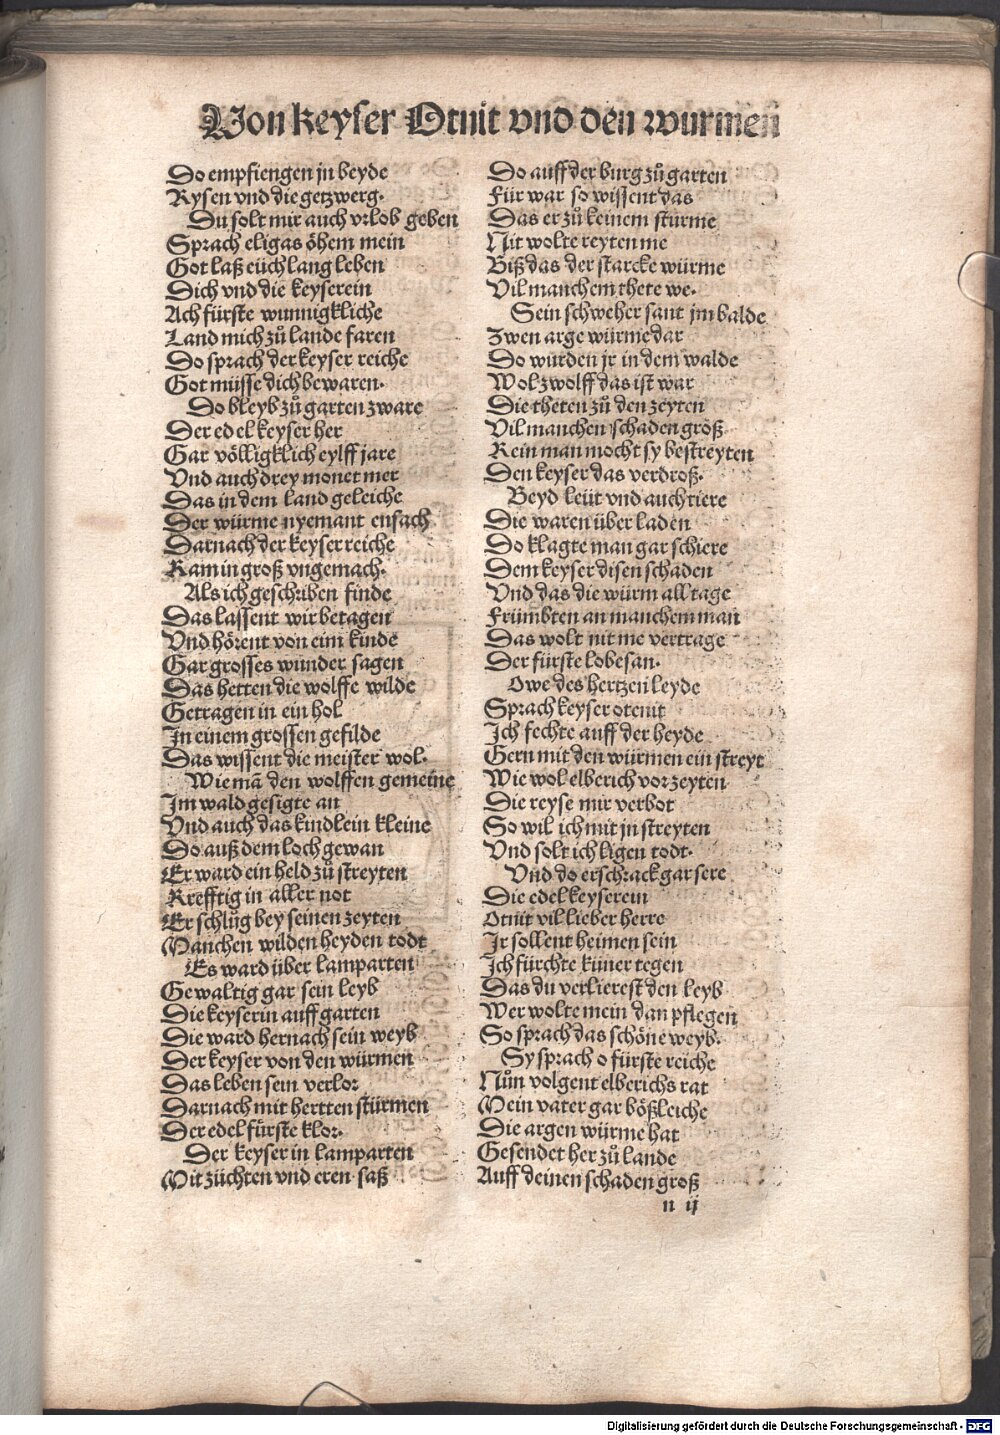 Von keyser Otnit vnd den wurmen
Do empfiengen jn beyde
Rysen vnd die getzwerg.
Du solt mir auch vrlob geben
Sprach eligas öhem mein
Got laß eüch lang leben
Dich vnd die keyserein
Ach fürste wunnigkliche
Land mich zů lande faren
Do sprach der keyser reiche
Got müsse dich bewaren.
Do bleyb zů garten zware
Der edel keyser her
Gar völligklich eylff jare
Vnd auch drey monet mer
Das in dem land geleiche
Der würme nyemant ensach
Darnach der keyser reiche
Kam in groß vngemach.
Als ich geschriben finde
Das lassent wir betagen
Vnd hörent von eim kinde
Gar grosses wunder sagen
Das hetten die wolffe wilde
Getragen in ein hol
In einem grossen gefilde
Das wissent die meister wol.
Wie mā den wolffen gemeine
Im wald gesigte an
Vnd auch das kindlein kleine
Do auß dem loch gewan
Er ward ein held zů streyten
Krefftig in aller not
Er schlůg bey seinen zeyten
Manchen wilden heyden todt
Es ward über lamparten
Gewaltig gar sein leyb
Die keyserin auff garten
Die ward hernach sein weyb
Der keyser von den würmen
Das leben sein verlor
Darnach mit hertten stürmen
Der edel fürste klor.
Der keyser in lamparten
Mit züchten vnd eren saß
Do auff der burg zů garten
Für war so wissent das
Das er zů keinem stürme
Nit wolte reyten me
Biß das der starcke würme
Vil manchem thete we.
Sein schweher sant jm balde
Zwen arge würme dar
Do wurden jr in dem walde
Wol zwolff das ist war
Die theten zů den zeyten
Vil manchen schaden groß
Kein man mocht sy bestreyten
Den keyser das verdroß.
Beyd leüt vnd auch tiere
Die waren über laden
Do klagte man gar schiere
Dem keyser disen schaden
Vnd das die würm all tage
Frümbten an manchem man
Das wolt nit me vertrage
Der fürste lobesan.
Owe des hertzen leyde
Sprach keyser otenit
Ich fechte auff der heyde
Gern mit den würmen ein streyt
Wie wol elberich vor zeyten
Die reyse mir verbot
So wil ich mit jn streyten
Vnd solt ich ligen todt.
Vnd do erschrack gar sere
Die edel keyserein
Otnit vil lieber herre
Ir sollent heimen sein
Ich fürchte küner tegen
Das du verlierest den leyb
Wer wolte mein dan pflegen
So sprach das schöne weyb.
Sy sprach o fürste reiche
Nůn volgent elberichs rat
Mein vater gar bößleiche
Die argen würme hat
Gesendet her zů lande
Auff deinen schaden groß
n ij
Digitalisierung gefördert durch die Deutsche Forschungsgemeinschaft - DFG